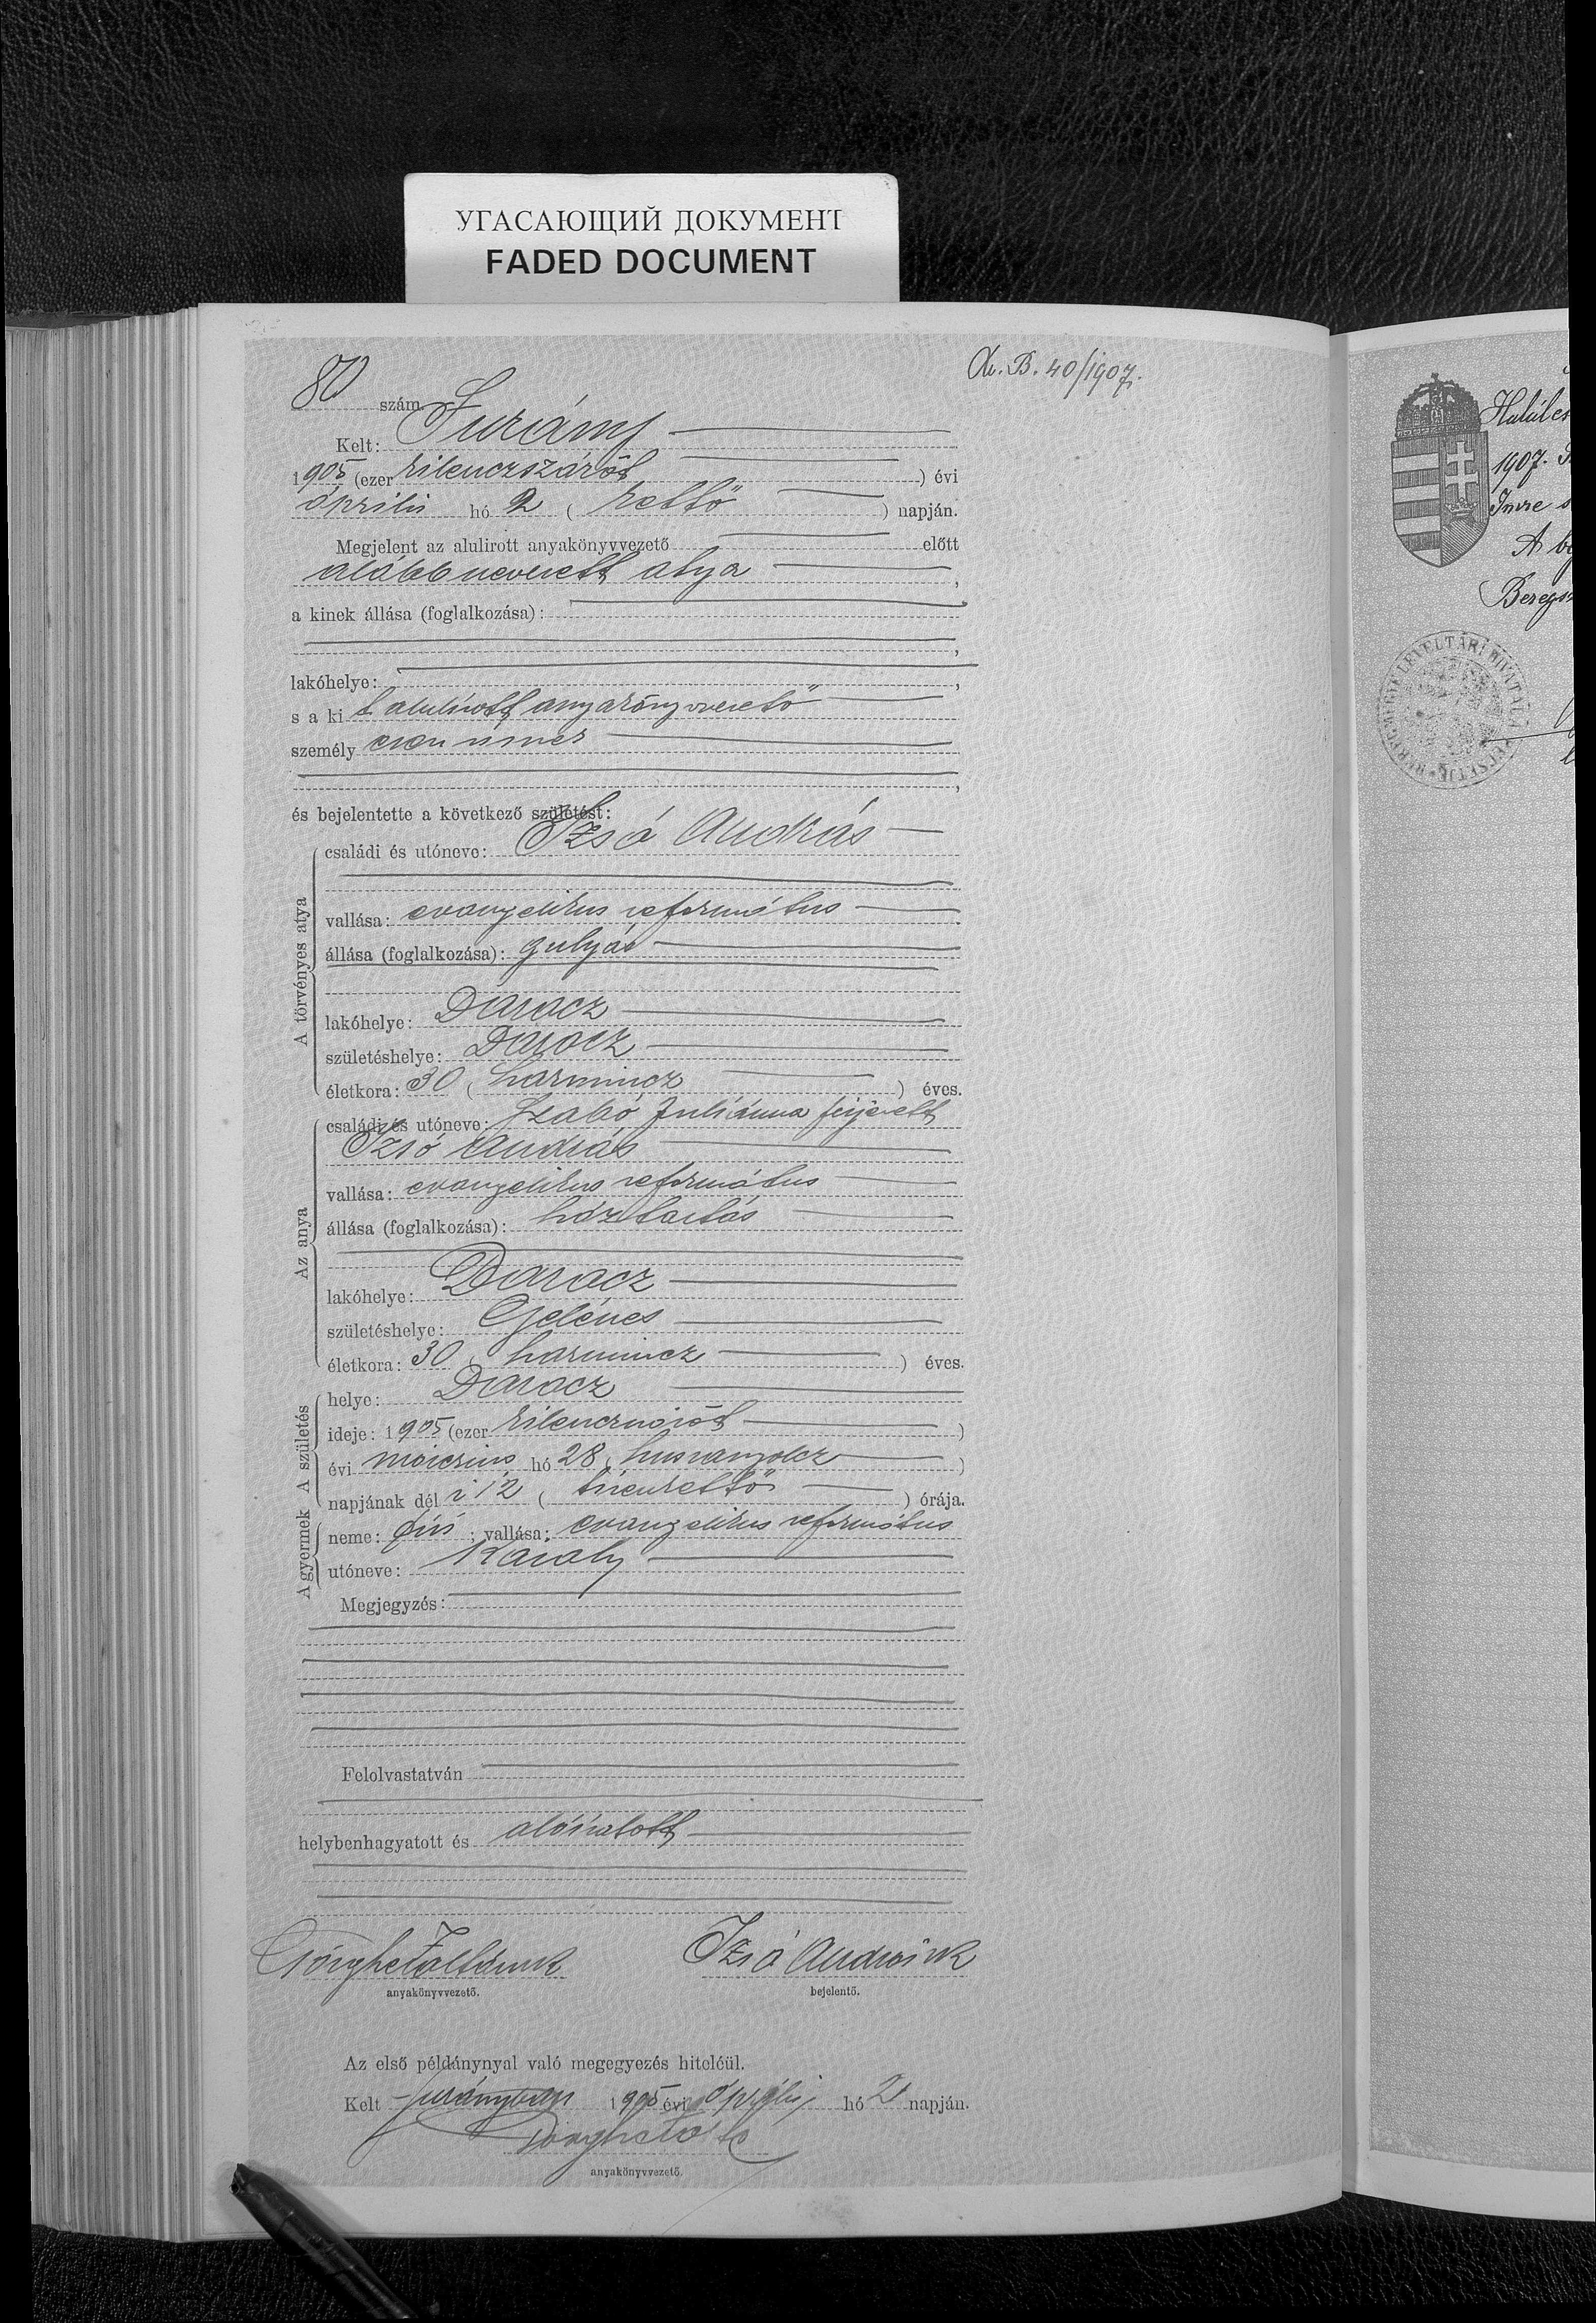 УГАСАЮЩИЙ ДОКУМЕНТ
FADED DOCUMENT
80 szám.
B. 40/1907.
Kelt: Surány
1905 (ezer kilenczszázöt) évi
április hó 2 (kettő) napján.
Megjelent az alulirott anyakönyvvezető előtt
alább nevezett atya,
a kinek állása (foglalkozása):
lakóhelye:
s a ki t alulirott anyakönyvvezető
személyesen ismer
és bejelentette a következő születést:
A törvényes atya
családi és utóneve: Izsó András
vallása: evangelikus református
állása (foglalkozása): gulyás
lakóhelye: Darócz
születéshelye: Darócz
életkora: 30 (harmincz) éves.
Az anya
családi és utóneve: Szabó Juliánna férjezett
Izsó András
vallása: evangelikus református
állása (foglalkozása): háztartás
lakóhelye: Darócz
születéshelye: Gelénes
életkora: 30 (harmincz) éves.
A születés
helye: Darócz
ideje: 1905 (ezer kilenczszázöt)
évi márczius hó 28 (huszonnyolcz)
napjának dél i 12 (tizenkettő) órája.
A gyermek
neme: fiú; vallása: evangelikus református
utóneve: Károly
Megjegyzés:
Felolvastatván
helybenhagyatott és aláíratott
anyakönyvvezető.
Izsó András k
bejelentő.
Az első példánynyal való megegyezés hiteléül.
Kelt Surányban 1905 évi április hó 2 napján.
anyakönyvvezető.
1907.
Imre
A